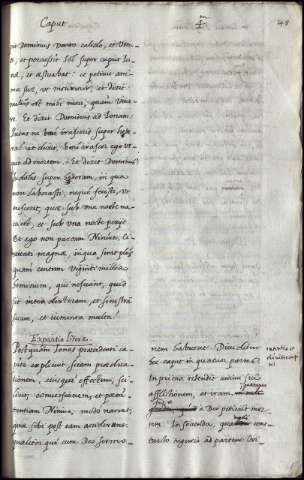 Caput
4.m
48
rat Dominus vento calido, et uren-
ti, et percussit Sol super caput Io-
næ, et æstuabat: et petivit ani-
mæ suæ, ut moreretur, et dixit:
melius est mihi mori, quam vive-
re. Et dixit Dominus ad Ionam:
Putas ne bene irasceris super hede-
ra? et dixit, bene irascor ego us-
que ad mortem. Et dixit Dominus
tu doles super hederam, in qua
non laborasti, neque fecisti, ut
cresceret, quæ sub una nocte na-
ta est, et sub una nocte perijt.
Et ego non parcam Ninive, Ci-
vitati magnæ, in qua sunt plus
quam centum viginti millia
hominum, qui nesciunt, quid
sit inter dexteram, et sinistrã
suam, et iumenta multa?
Expositio literæ.
Postquam Ionas præcedenti ca-
pite explicuit secum prædica-
tionem, eiusque effectum, sci-
licet, conversionem, et pœni-
tentiam Ninive, modo narrat,
quæ sibi post eam acciderunt:
qualem cum Deo sermo-
nem habuerit. Dividitur
hoc caput in quatuor partes.
In prima ostendit animi sui
afflictionem, et iram
a Deo petierit mor-
tem. In secunda,